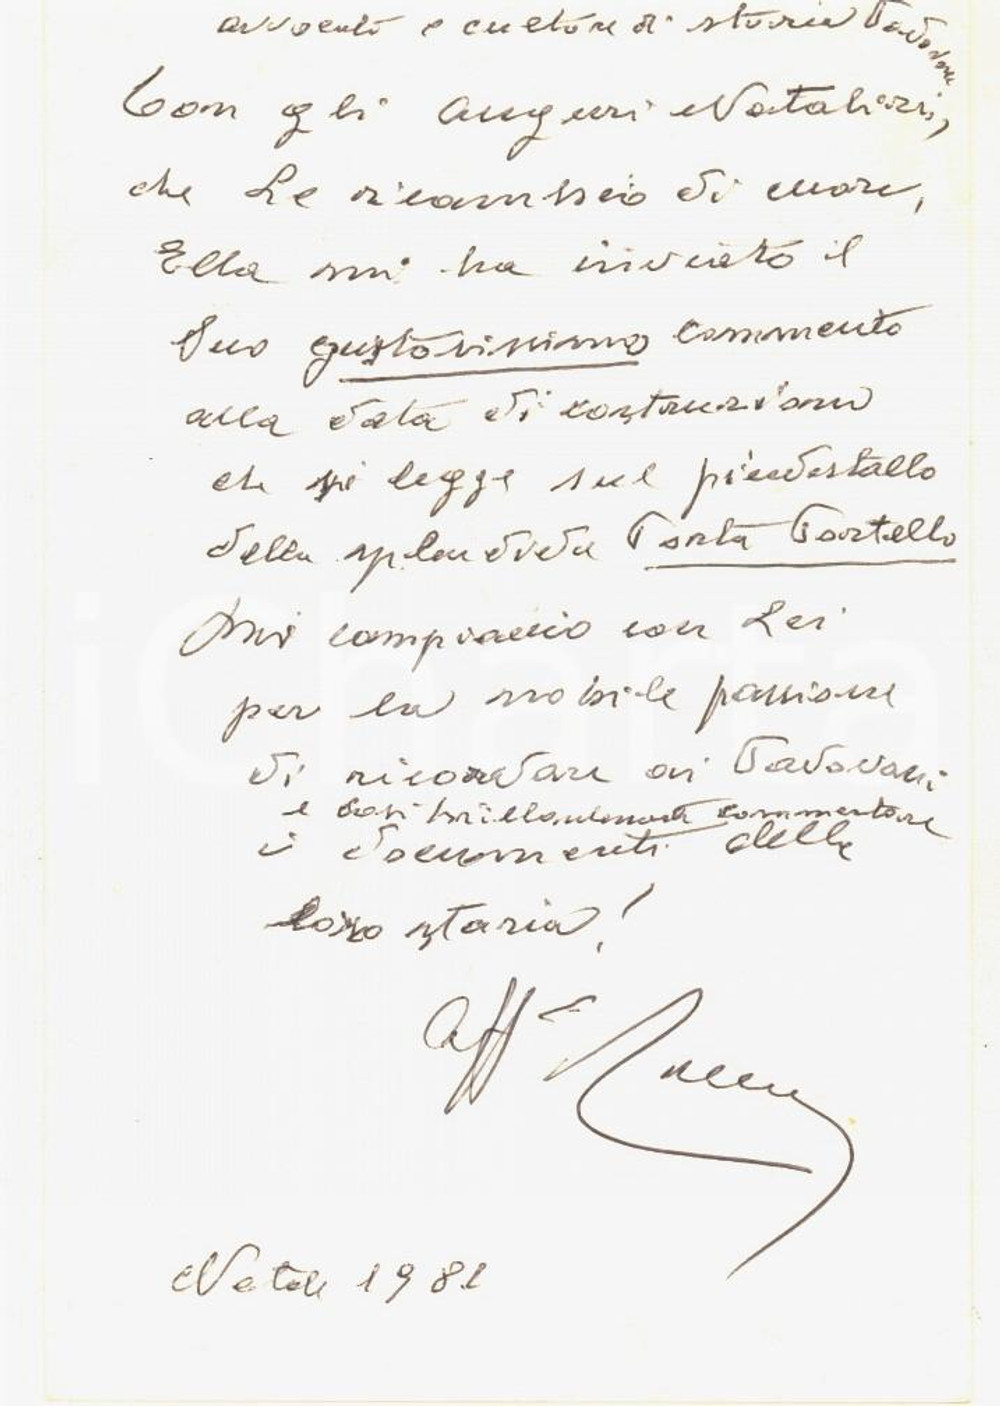 avvocato e cultore di storia Padovana
Con gli auguri Natalizi,
che Le ricambio di cuore,
Ella mi ha inviato il
Suo gustosissimo commento
alla data di costruzione
che si legge sul piedestallo
della splendida Porta Portello
Mi compiaccio con Lei
per la nobile passione
di ricordare ai Padovani
e così brillantemente commentare
i documenti della
loro storia!
Aff.
Natale 1981
iCharta